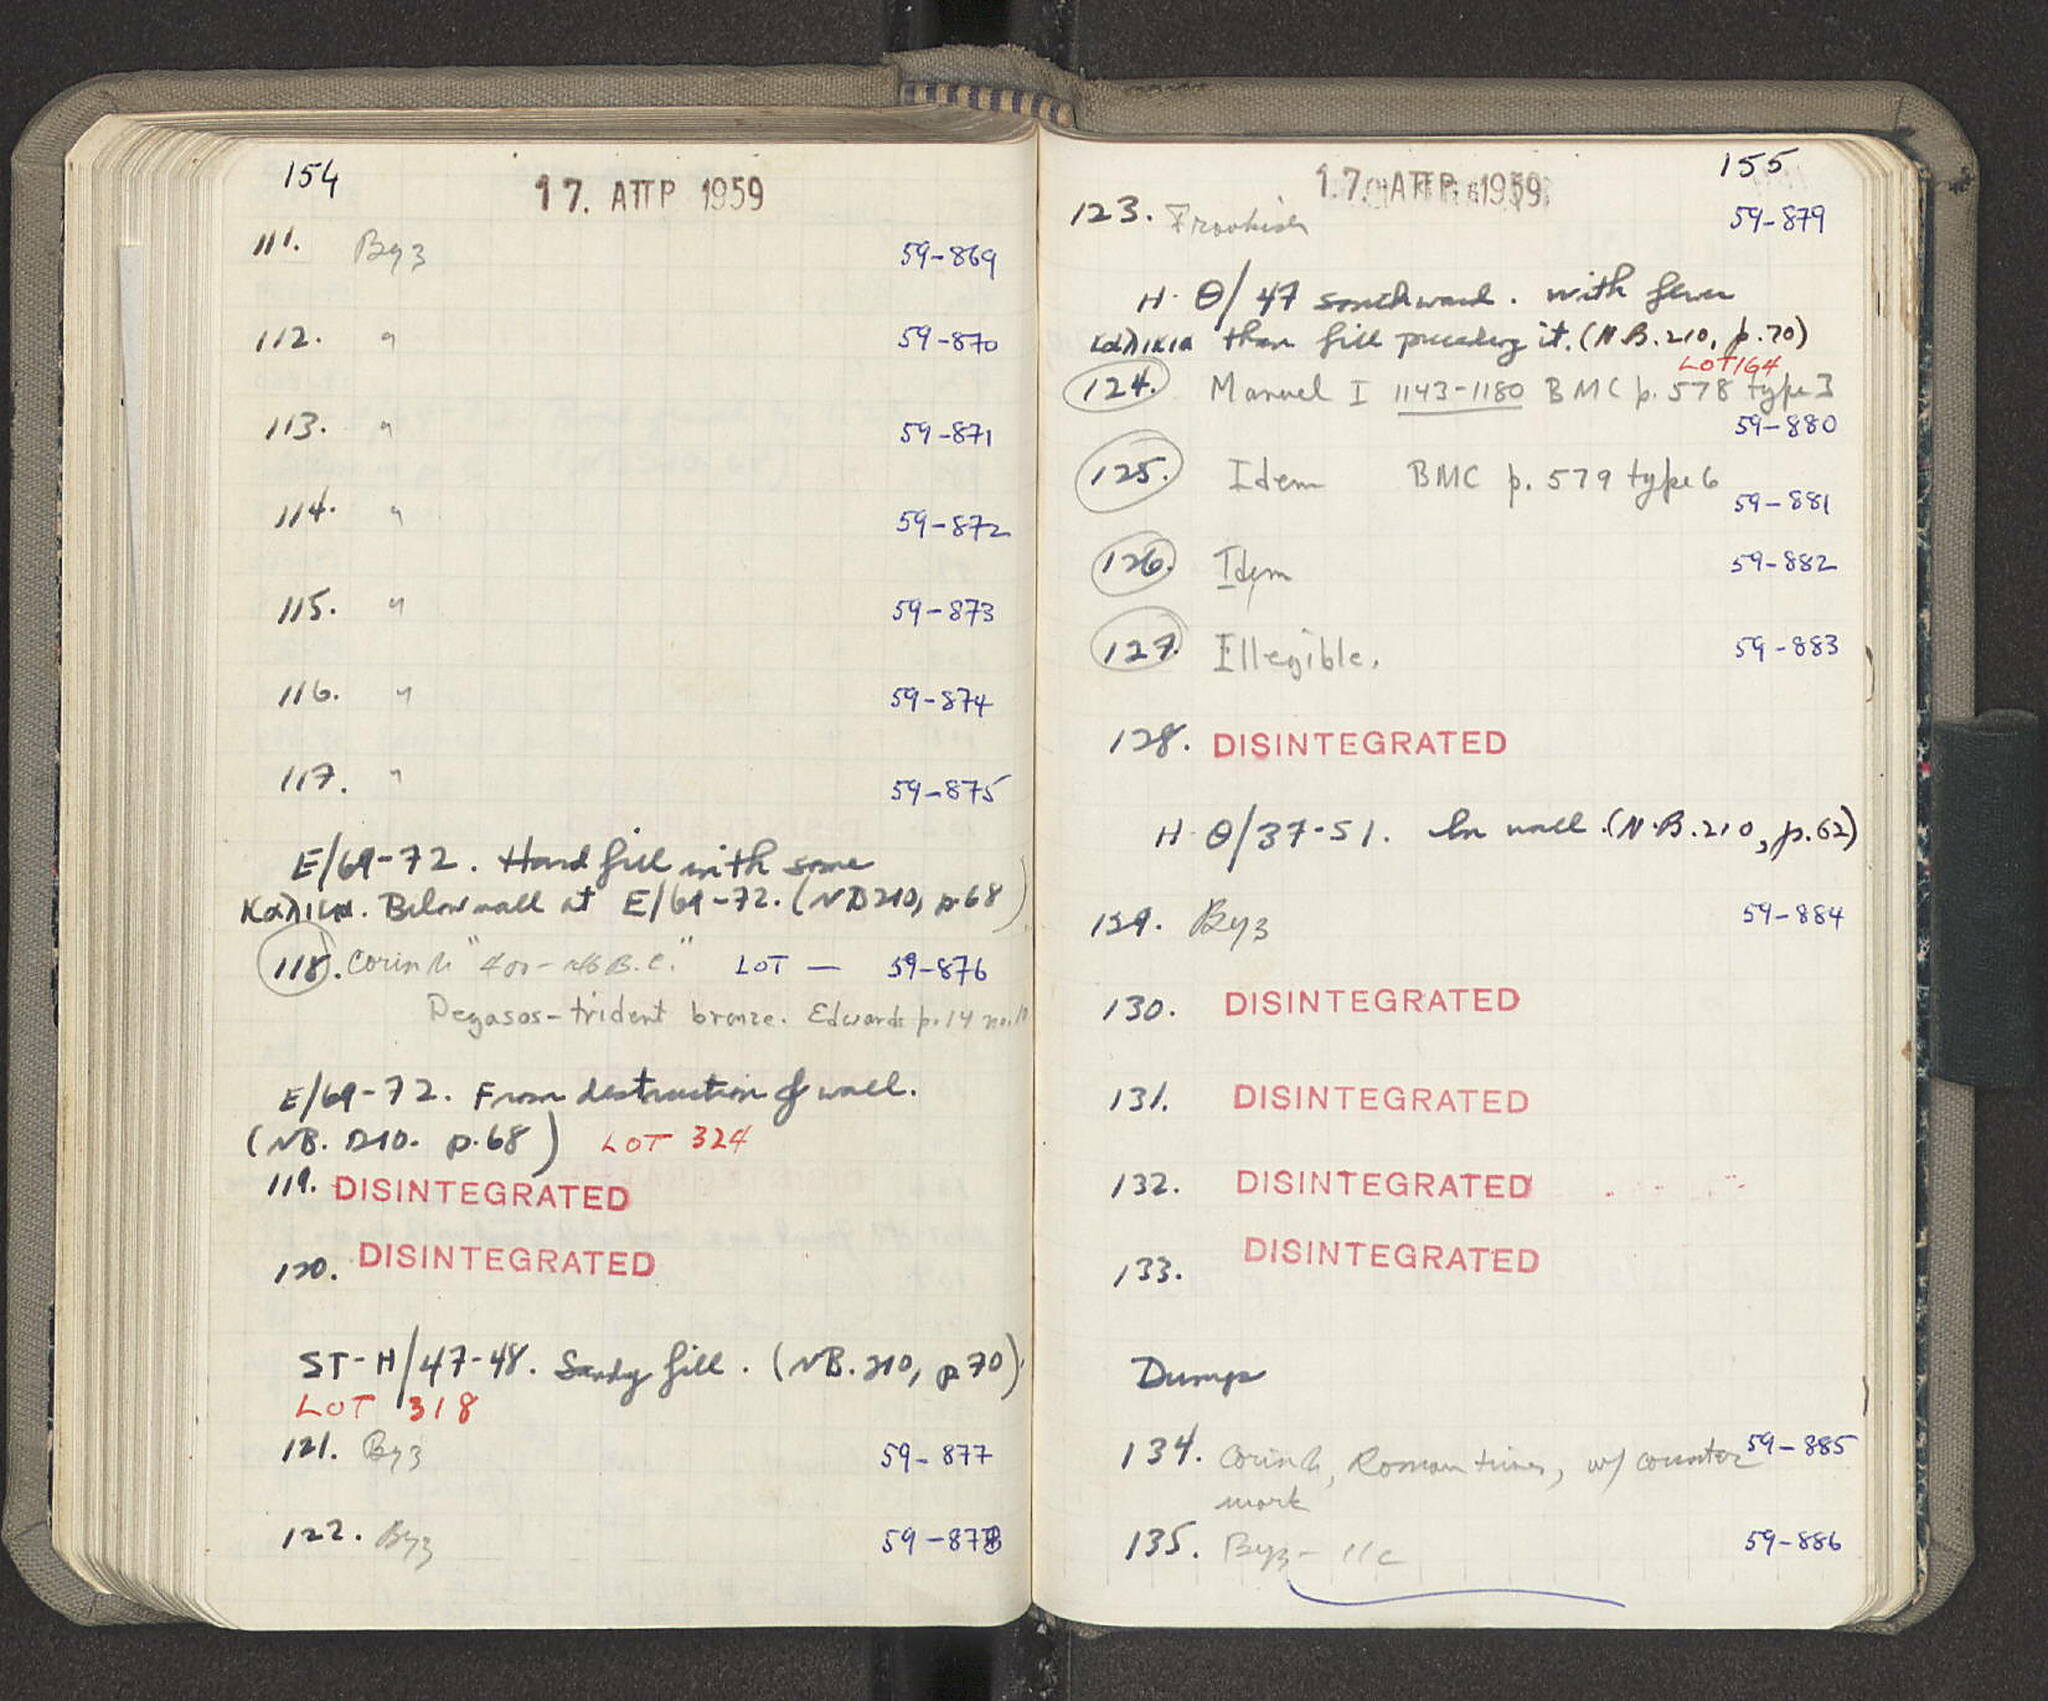 154
17. ΑΠΡ 1959
111. Byz 59-869
112. " 59-870
113. " 59-871
114. " 59-872
115. " 59-873
116. " 59-874
117. " 59-875
E/69-72. Hard fill with some
καλικια. Below wall at E/69-72. (NB 210, p.68)
118. Corinth "400-146 B.C." LOT — 59-876
Pegasos-trident bronze. Edwards p.14 no.11
E/69-72. From destruction of wall.
(NB. 210. p.68) LOT 324
119. DISINTEGRATED
120. DISINTEGRATED
ST-H/47-48. Sandy fill. (NB. 210, p 70).
LOT 318
121. Byz 59-877
122. Byz 59-878
155
17. ΑΠΡ 1959
123. 59-879
H-Θ/47 southward. with fewer
καλικια than fill preceding it. (N.B. 210, p.70)
LOT 164
124. Manuel I 1143-1180 BMC p. 578 type 3
59-880
125. Idem BMC p. 579 type 6
59-881
126. Idem 59-882
127. Illegible. 59-883
128. DISINTEGRATED
H-Θ/37-51. In wall. (N.B. 210, p.62)
129. Byz 59-884
130. DISINTEGRATED
131. DISINTEGRATED
132. DISINTEGRATED
133. DISINTEGRATED
Dumps
134. Corinth, Roman times, w/ counter 59-885
mark
135. Byz - 11c 59-886